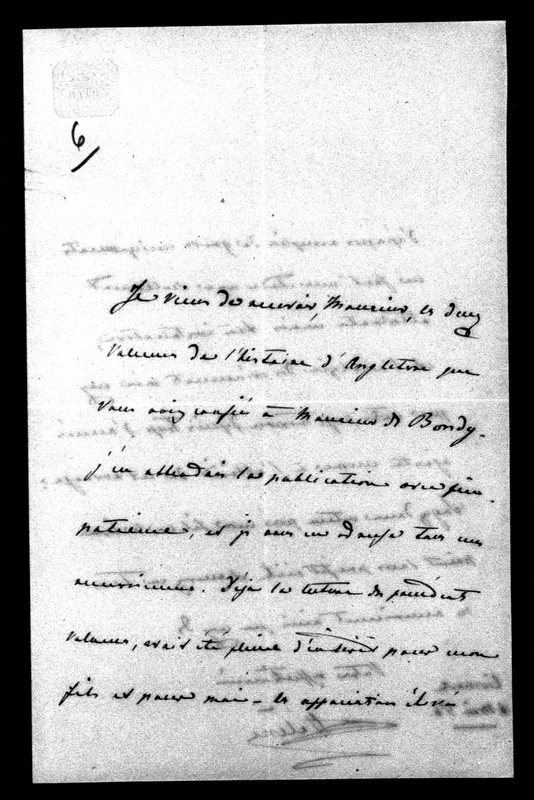 6
Je viens de recevoir, Monsieur, les deux
volumes de l'histoire d'Angleterre que
vous avez confié à Monsieur de Bondy.
j'en attendais la publication avec im-
patience, et je vous en adresse tous mes
remerciemens. Déjà la lecture des précédents
volumes, avait été pleine d'intérêt pour mon
fils et pour moi - les appréciations élevées